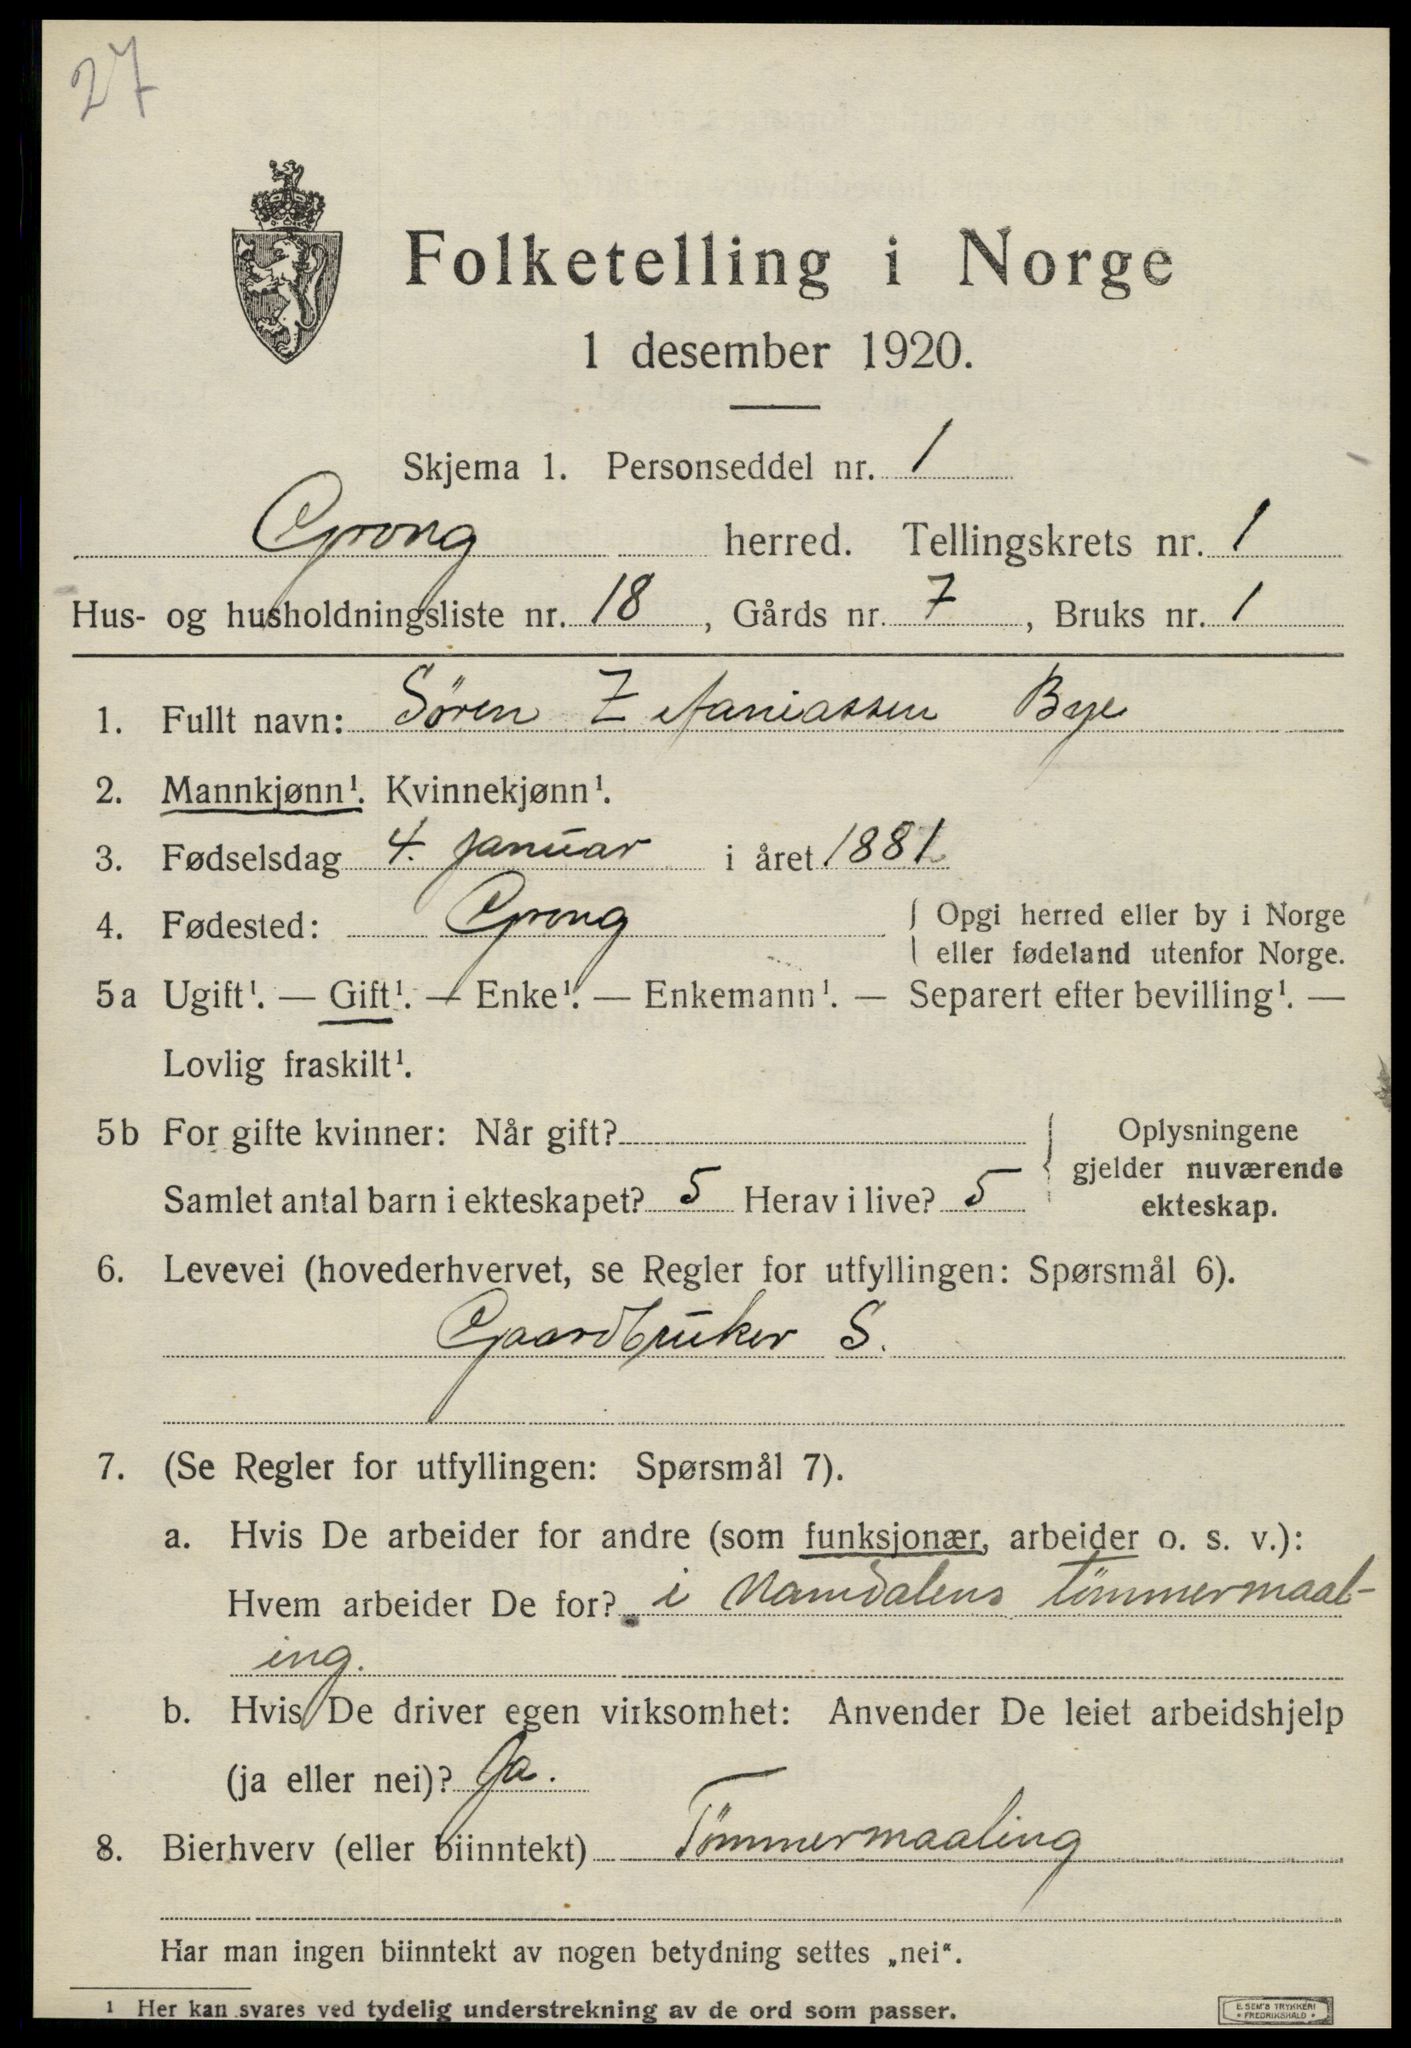 27
Folketelling i Norge
1 desember 1920.
Skjema 1. Personseddel nr. 1
Grong herred. Tellingskrets nr. 1
Hus- og husholdningsliste nr. 18, Gårds nr. 7, Bruks nr. 1
1. Fullt navn: Søren Zefaniassen Bye
2. Mannkjønn¹. Kvinnekjønn¹.
3. Fødselsdag 4. januar i året 1881
4. Fødested: Grong { Opgi herred eller by i Norge
eller fødeland utenfor Norge.
5a Ugift¹. — Gift¹. — Enke¹. — Enkemann¹. — Separert efter bevilling¹. —
Lovlig fraskilt¹.
5b For gifte kvinner: Når gift?
Samlet antal barn i ekteskapet? 5 Herav i live? 5
Oplysningene
gjelder nuværende
ekteskap.
6. Levevei (hovederhvervet, se Regler for utfyllingen: Spørsmål 6).
Gaardbruker S.
7. (Se Regler for utfyllingen: Spørsmål 7).
a. Hvis De arbeider for andre (som funksjonær, arbeider o. s. v.):
Hvem arbeider De for? i Namdalens tømmermaal-
ing.
b. Hvis De driver egen virksomhet: Anvender De leiet arbeidshjelp
(ja eller nei)? Ja.
8. Bierhverv (eller biinntekt) Tømmermaaling
Har man ingen biinntekt av nogen betydning settes „nei“.
¹ Her kan svares ved tydelig understrekning av de ord som passer.
E. SEM'S TRYKKERI
• FREDRIKSHALD •